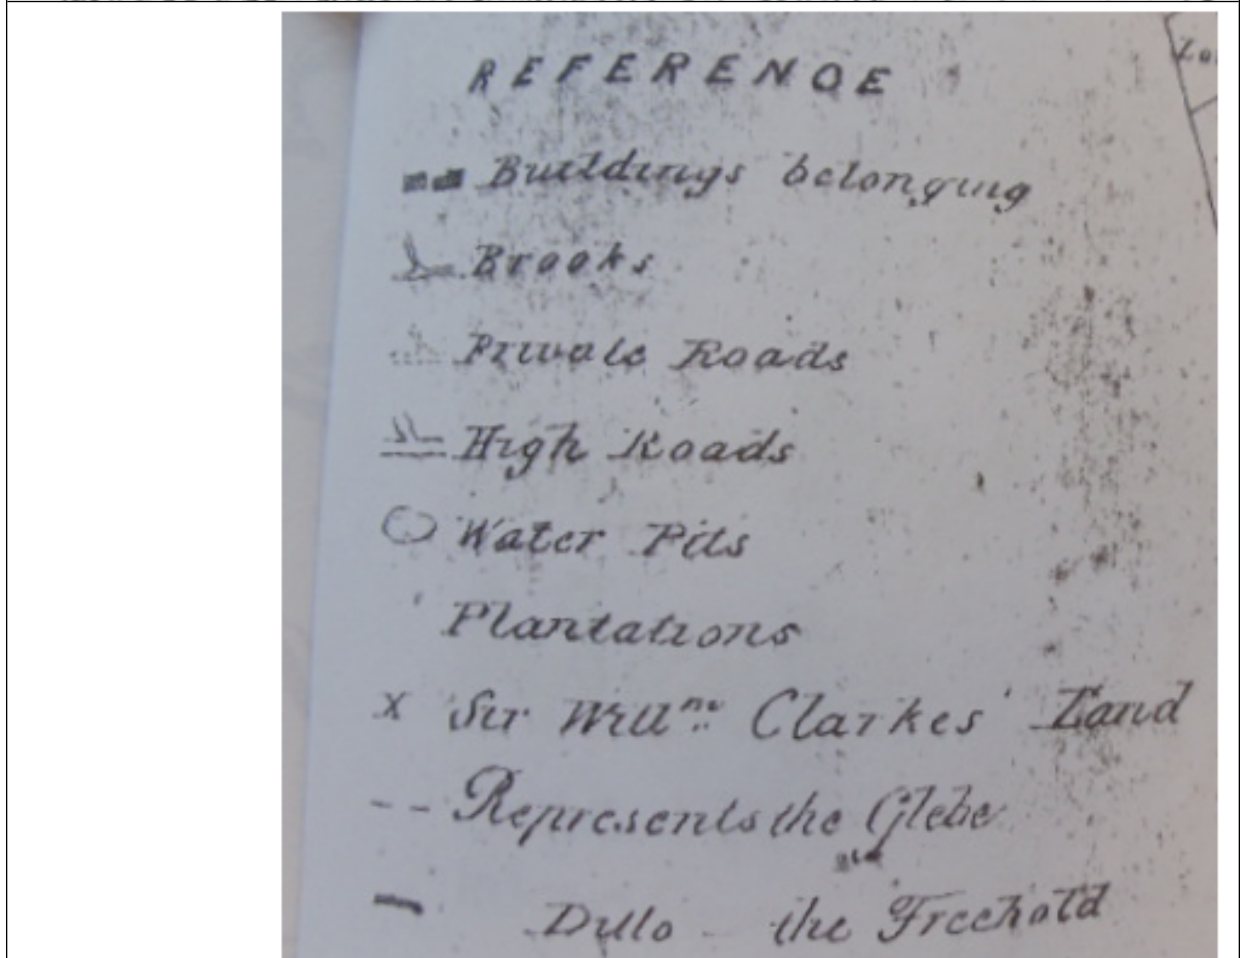 REFERENCE
Buildings belonging
Brooks
Private Roads
High Roads
Water Pits
Plantations
x Sir Willm. Clarkes' Land
-- Represents the Glebe
- Ditto - the Freehold